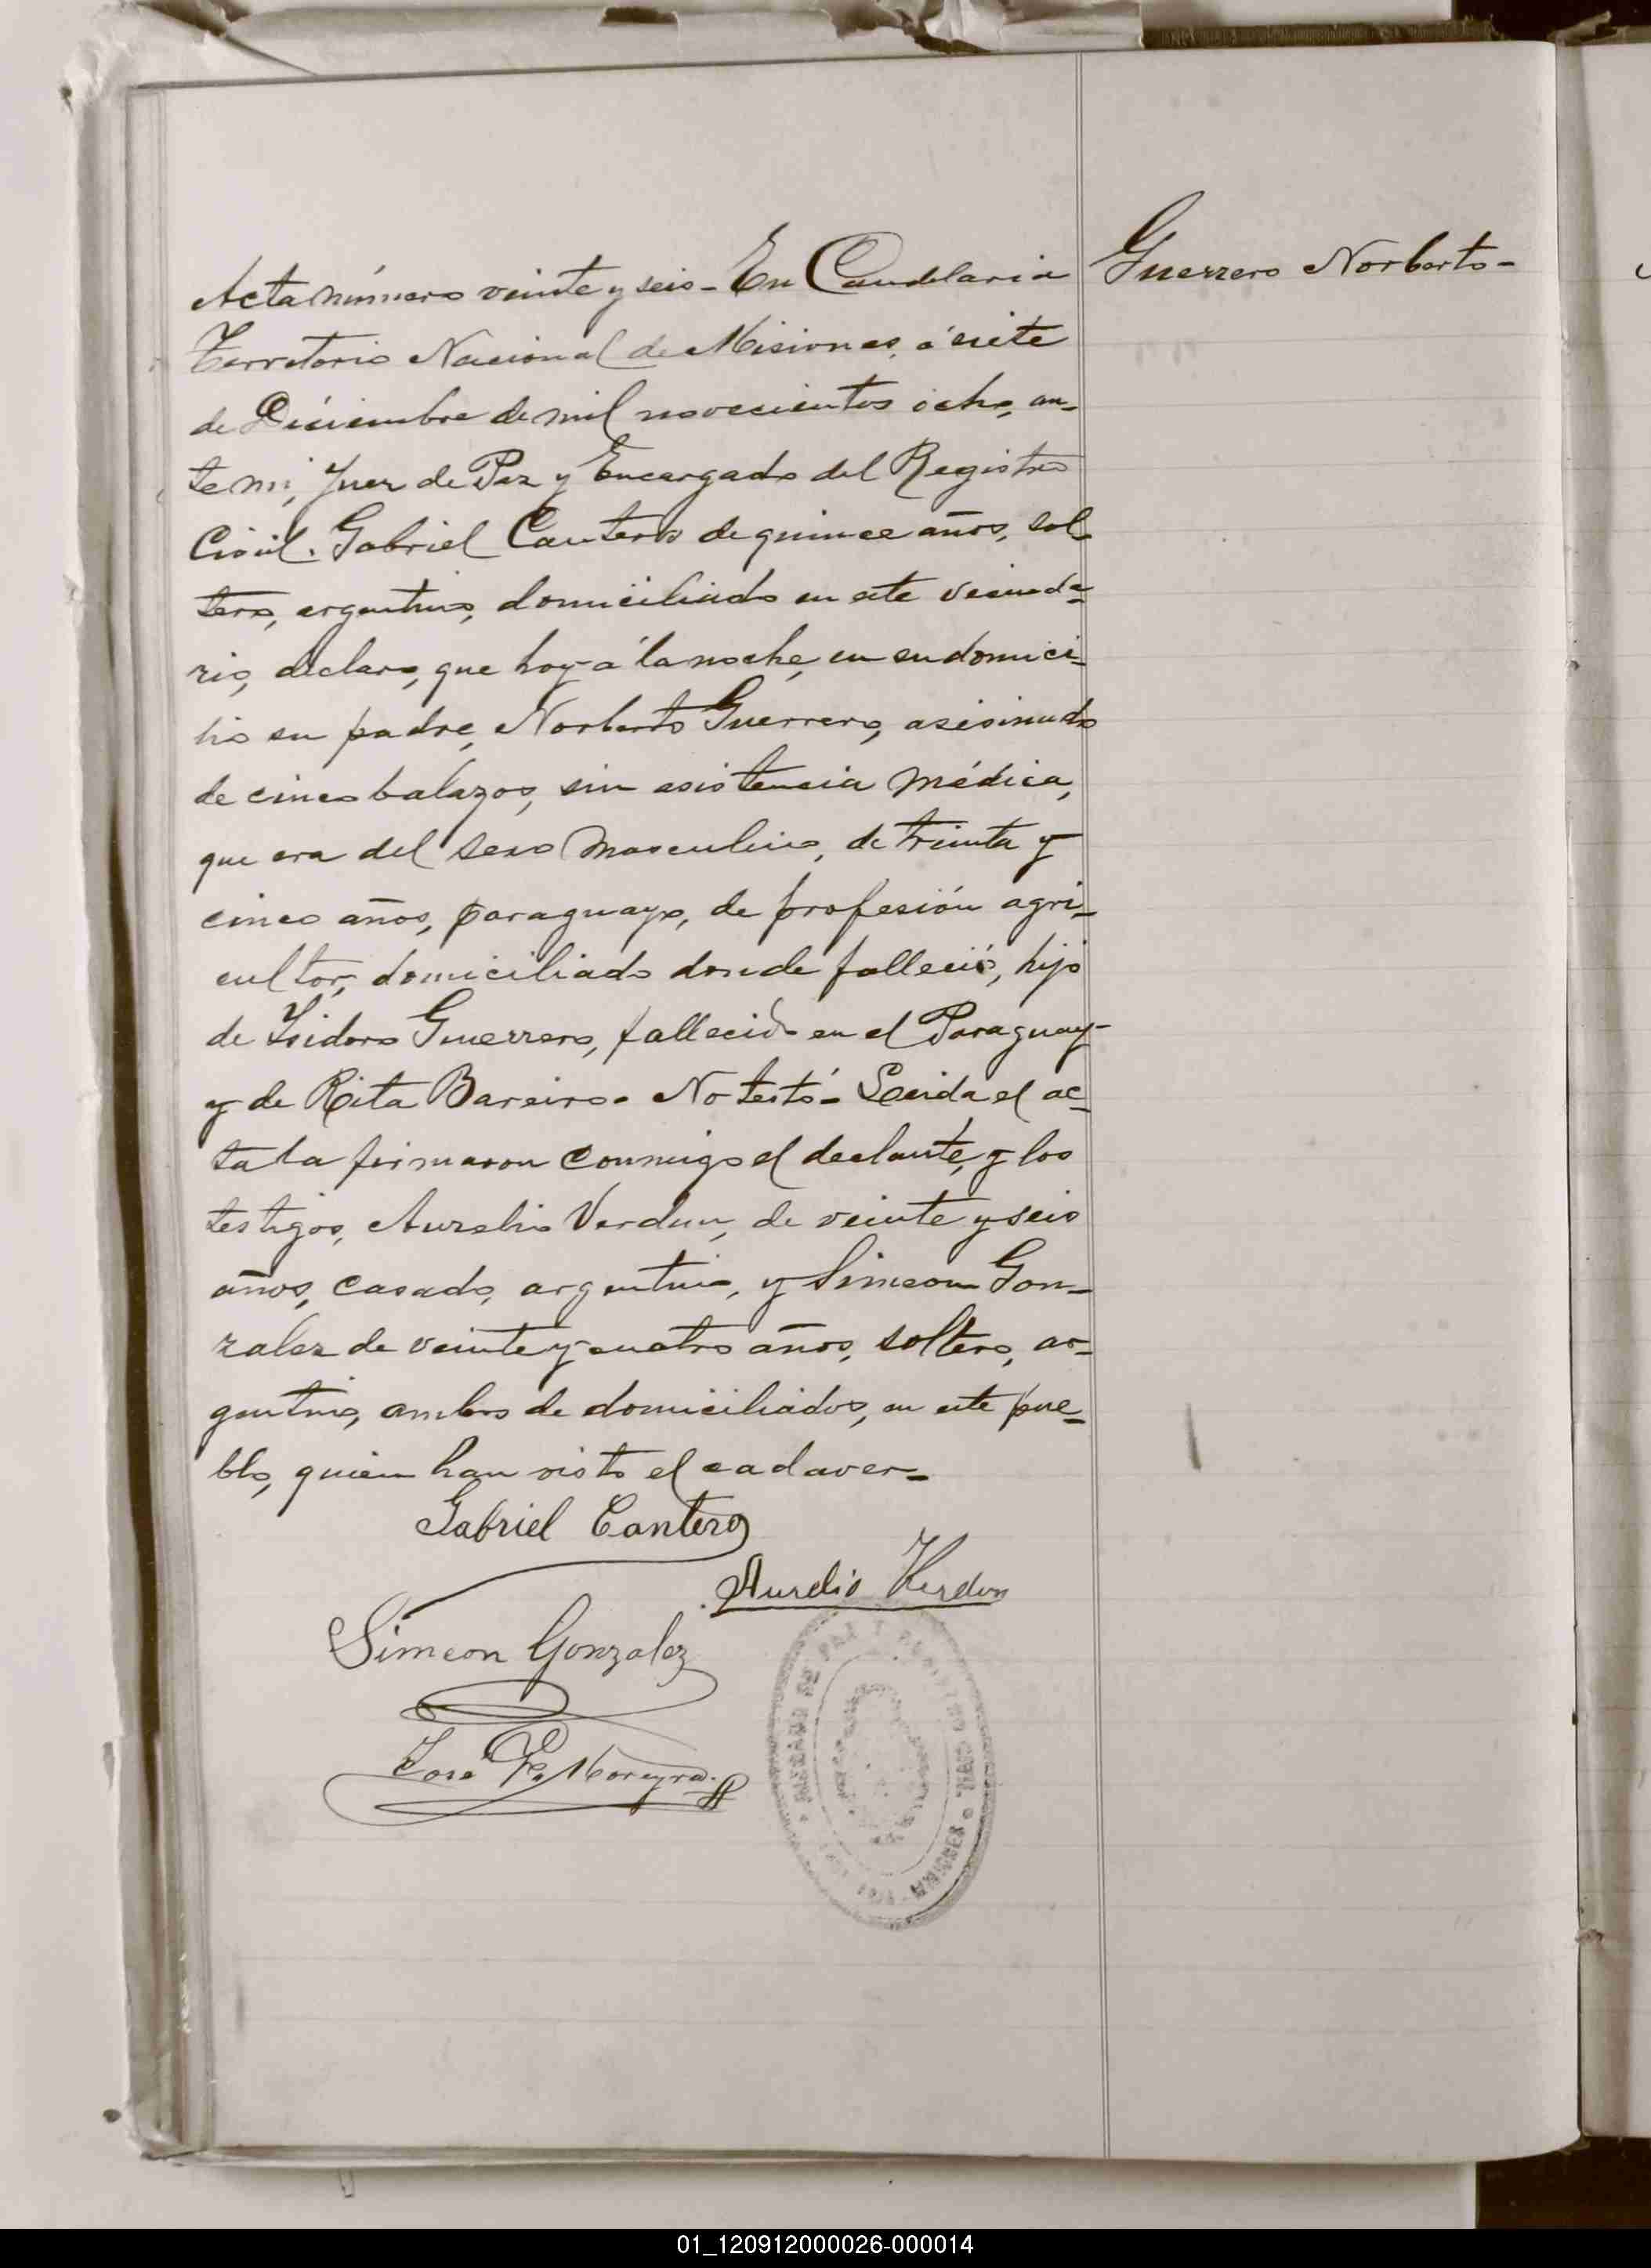 Guerrero Norberto-
Acta número veinte y seis- En Candelaria
Territorio Nacional de Misiones, á siete
de Diciembre de mil novecientos ócho, an-
te mi, Juez de Paz y Encargado del Registro
Civil. Gabriel Cantero de quince años, sol-
tero, argentino, domiciliado en este vecinda-
rio, declaro, que hoy á la noche, en su domici-
lio su padre, Norberto Guerrero, asesinado
de cinco balazos, sin asistencia médica,
que era del sexo masculino, de treinta y
cinco años, paraguayo, de profesión agri-
cultor, domiciliado donde falleció, hijo
de Isidoro Guerrero, fallecido en el Paraguay-
y de Rita Bareiro- No testó- Leida el ac-
ta la firmaron conmigo el declante, y los
testigos, Aurelio Verdun, de veinte y seis
años, casado, argentino, y Simeon Gon-
zalez de veinte y cuatro años, soltero, ar-
gentino, ambos de domiciliados, en este pue-
blo, quien han visto el cadaver-
Gabriel Cantero
Aurelio Verdun
Simeon Gonzalez
José Moreyra
JUZGADO DE PAZ Y REGISTRO CIVIL
MISIONES
01_120912000026-000014